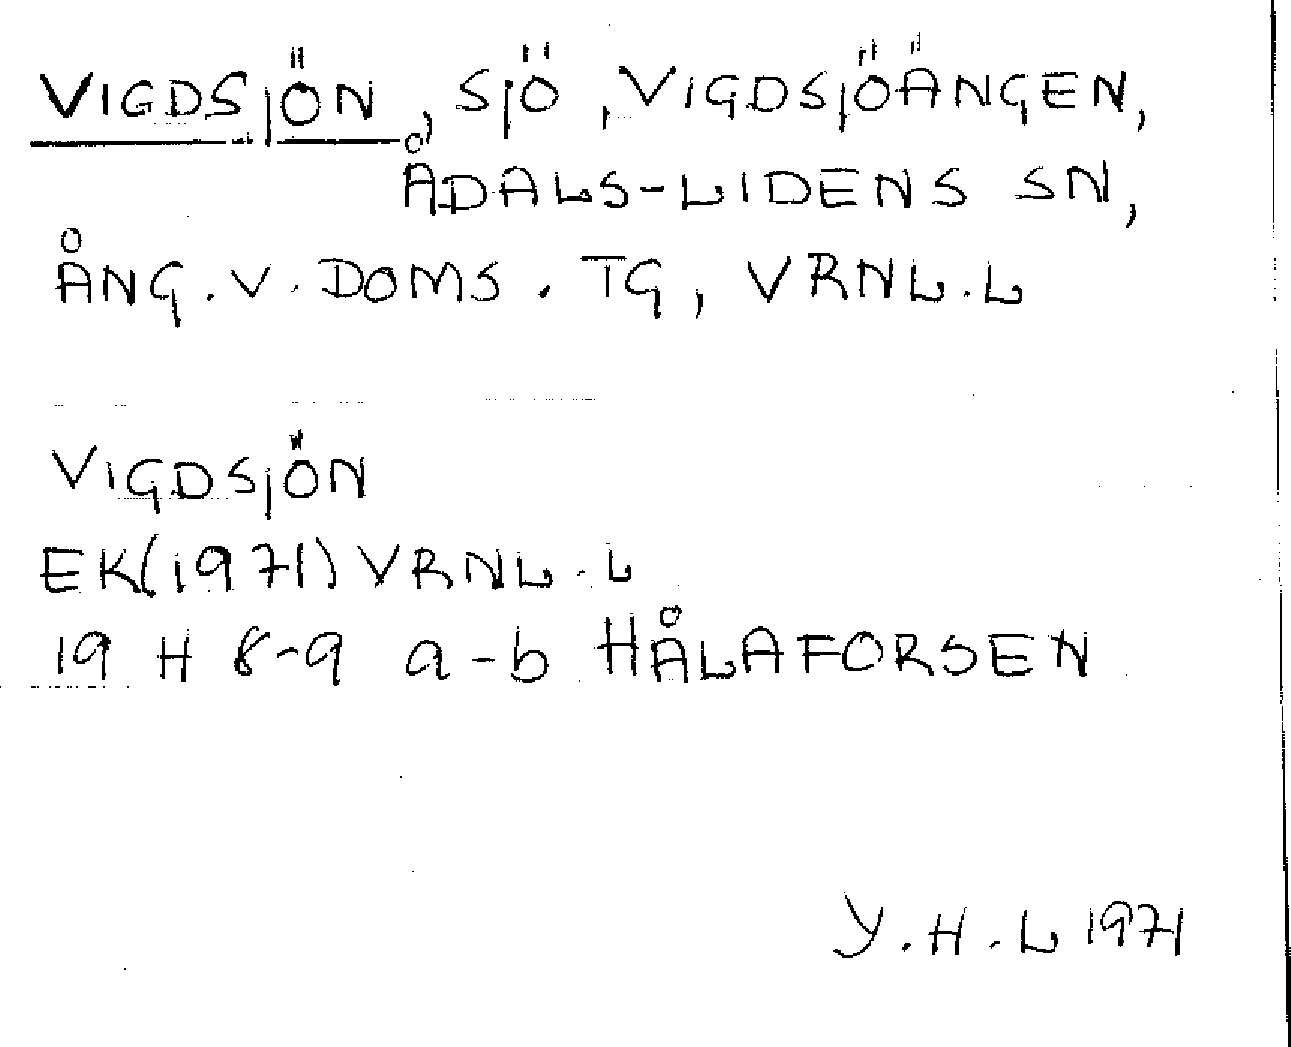 VIGDSJÖN, SJÖ, VIGDSJÖÄNGEN,
ÅDALS-LIDENS SN,
ÅNG. V. DOMS. TG, VRNL. L
VIGDSJÖN
EK(1971) VRNL. L
19 H 8-9 a-b HÅLAFORSEN
Y. H. L 1971